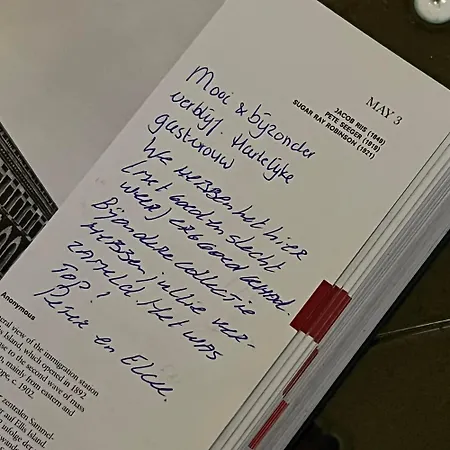 MAY 3
JACOB RIIS (1849)
PETE SEEGER (1919)
SUGAR RAY ROBINSON (1921)
Mooi & bijzonder
verblijf. Hartelijke
gastvrouw
We hebben het hier
(met goed en slecht
weer) erg goed gehad.
Bijzondere collectie
hebben jullie ver-
zameld. Het was
Top!
en
Anonymous
eral view of the immigration station
is Island, which opened in 1892
se to the second wave of mass
mainly from eastern and
pe, c. 1902.
er zentralen Sammel-
auf Ellis Island.
infolge der